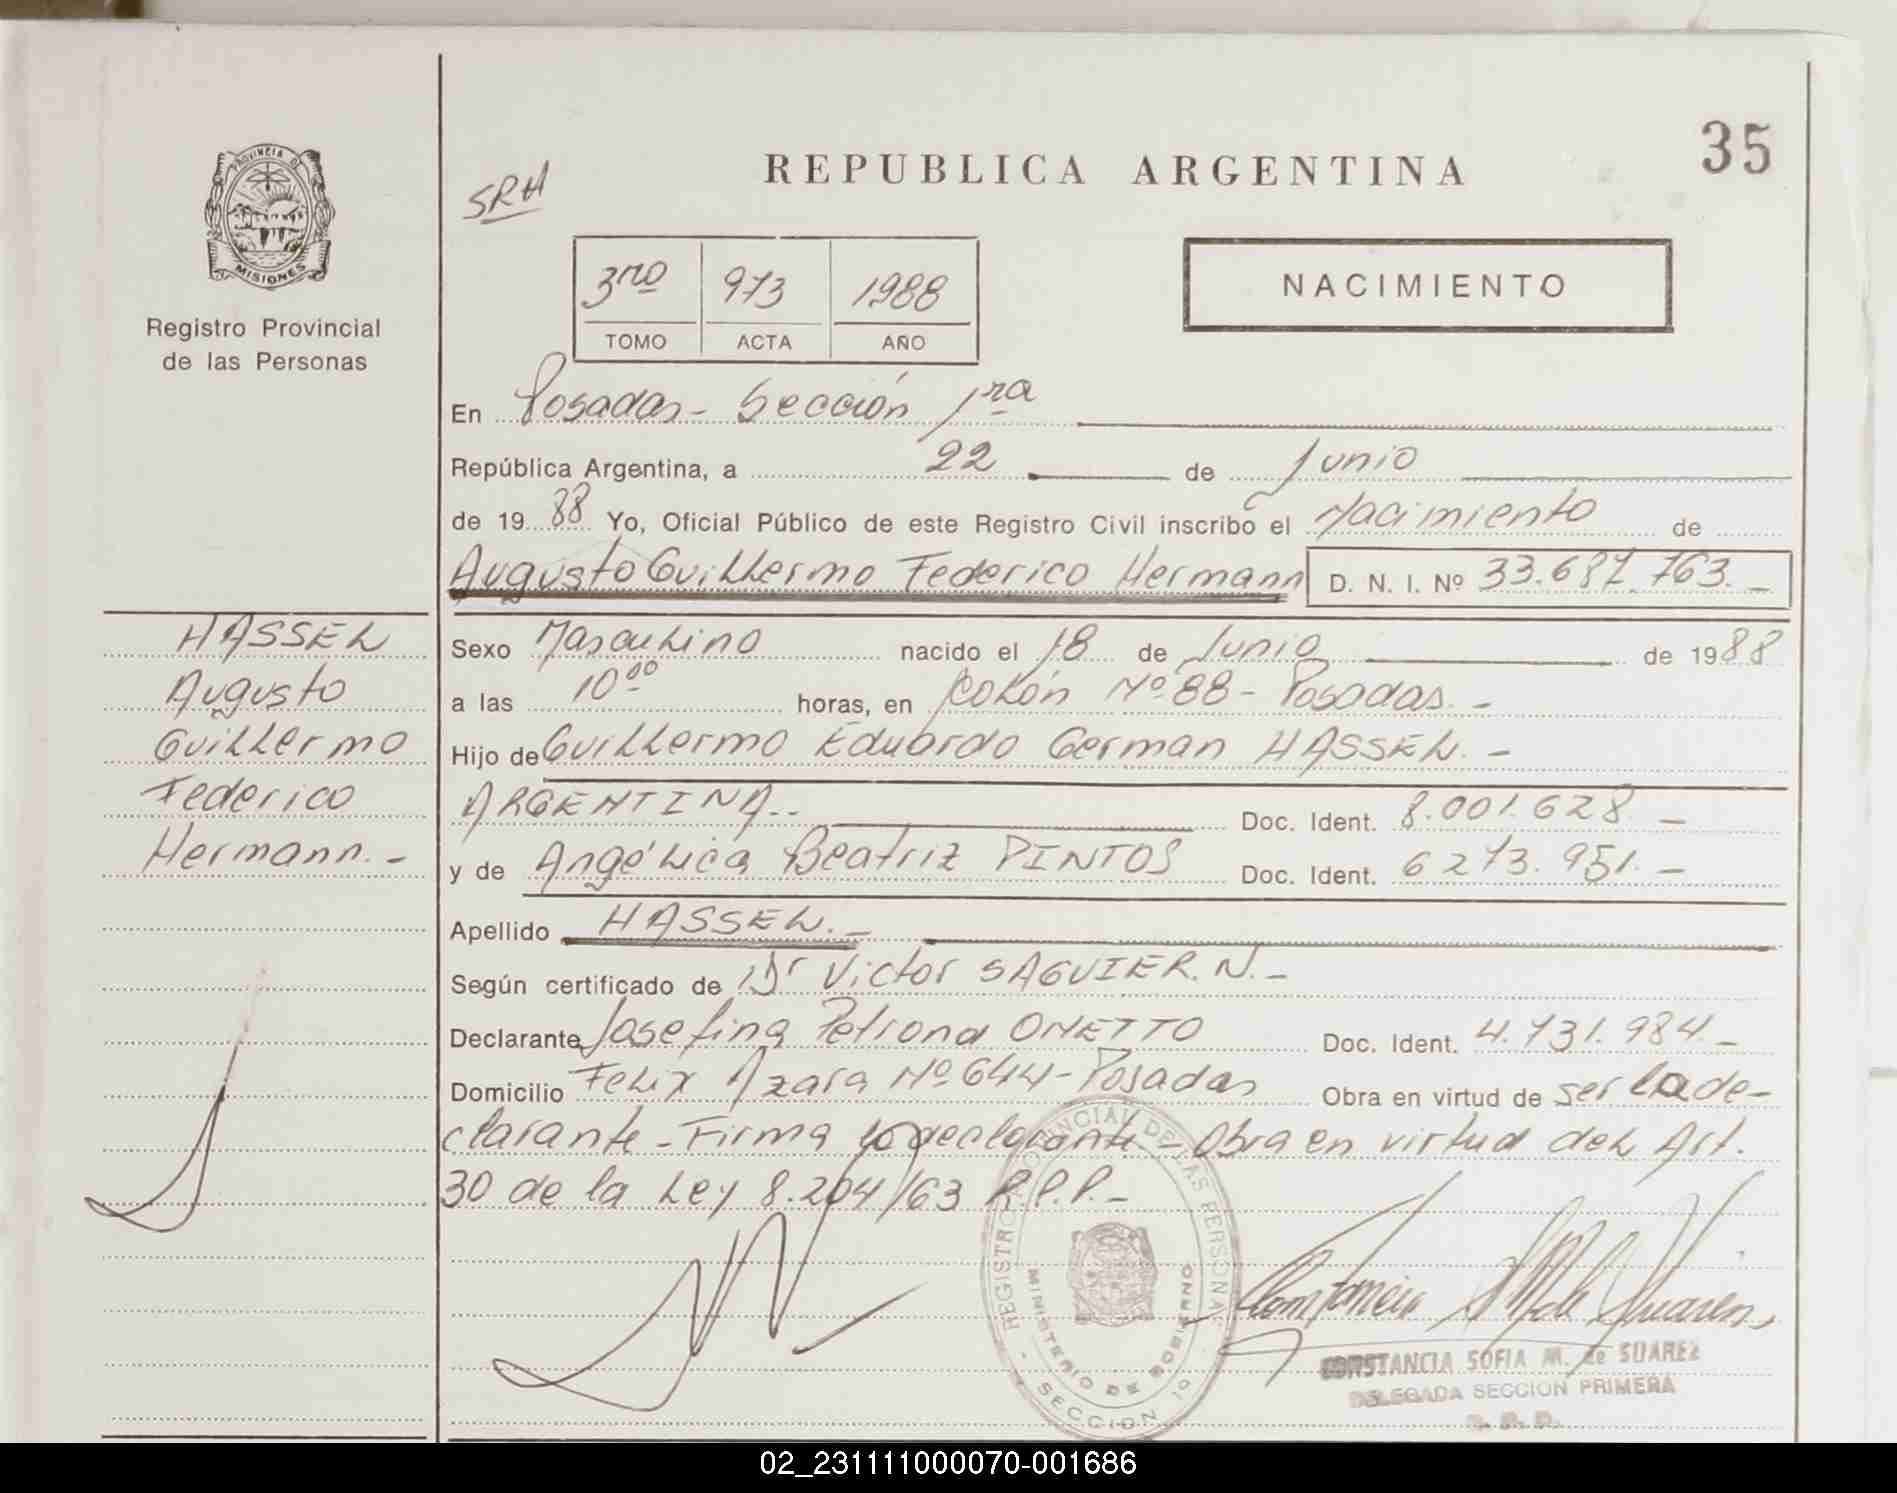 35
REPUBLICA ARGENTINA
SRH
PROVINCIA DE
MISIONES
Registro Provincial
de las Personas
3ro 973 1988
TOMO ACTA AÑO
NACIMIENTO
En Posadas - Sección 1ra
República Argentina, a 22 de Junio
de 1988 Yo, Oficial Público de este Registro Civil inscribo el Nacimiento de
Augusto Guillermo Federico Hermann D. N. I. Nº 33.687.763.-
HASSEL
Augusto
Guillermo
Federico
Hermann.-
Sexo Masculino nacido el 18 de Junio de 1988
a las 10⁰⁰ horas, en Colón Nº 88 - Posadas.-
Hijo de Guillermo Eduardo German HASSEL.-
ARGENTINA.- Doc. Ident. 8.001.628.-
y de Angélica Beatriz PINTOS Doc. Ident. 6273.951.-
Apellido HASSEL.-
Según certificado de Dr Victor SAGUIER. N.-
Declarante Josefina Petrona ONETTO Doc. Ident. 4.731.984.-
Domicilio Felix Azara Nº 644 - Posadas Obra en virtud de ser la de-
clarante - Firma la declarante - Obra en virtud del Art.
30 de la Ley 8.204/63 R.P.P.-
REGISTRO PROVINCIAL DE LAS PERSONAS
MINISTERIO DE GOBIERNO
SECCION 1º
Constancia S M de Suarez
CONSTANCIA SOFIA M. de SUAREZ
DELEGADA SECCION PRIMERA
02_231111000070-001686